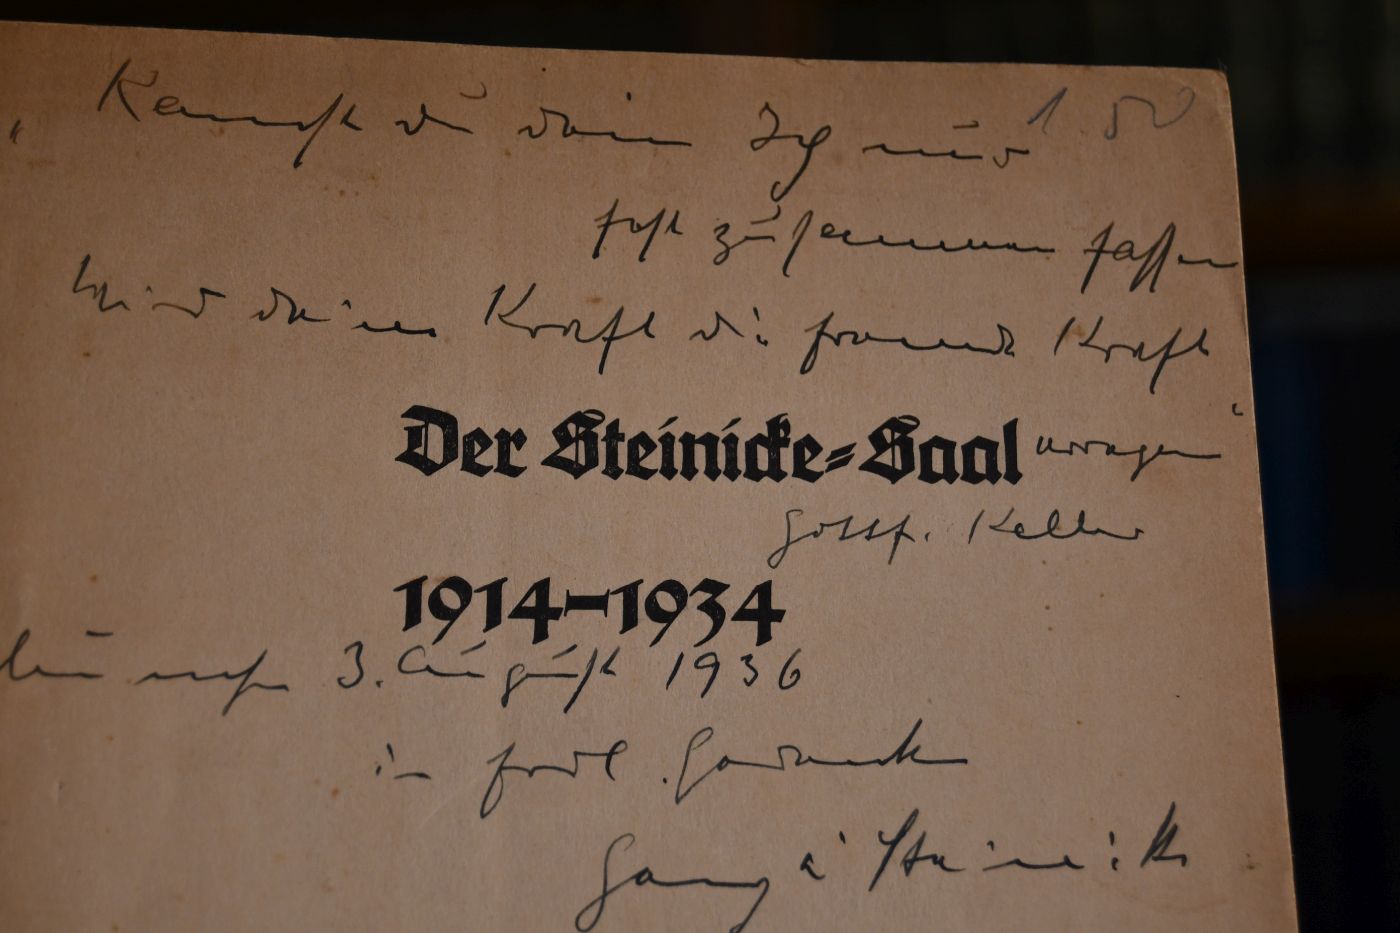 „Kannst du dein Ich nur
1 50
fest zusammen fassen
Wird deine Kraft die fremde Kraft
Der Steinicke=Saal
erregen“
Gottf. Keller
1914–1934
München 3. August 1936
in frdl. Gedenken
Steinicke